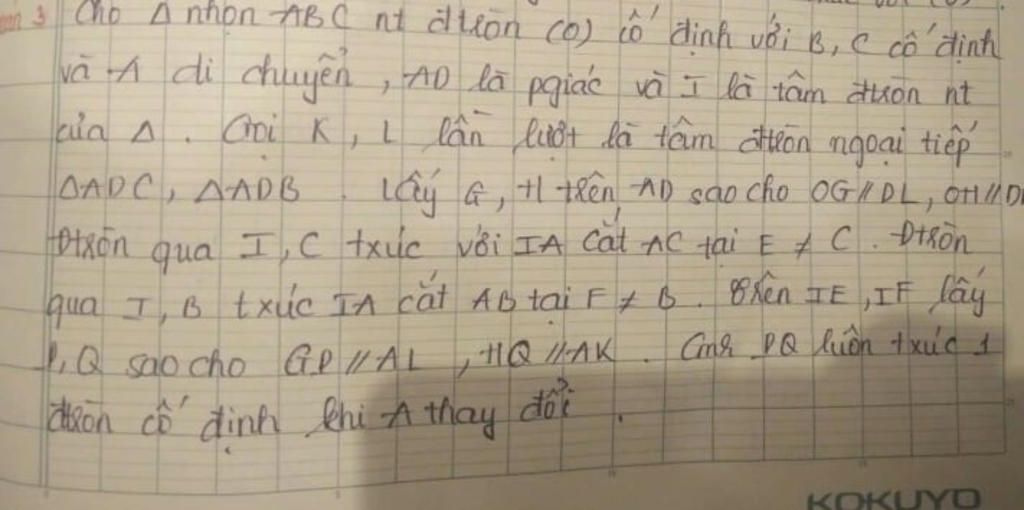 Cho Δ nhọn ABC nt đtròn (O) cố định với B, C cố định
và A di chuyển, AD là pgiác và I là tâm đtròn nt
của Δ. Gọi K, L lần lượt là tâm đtròn ngoại tiếp
ΔADC, ΔADB. Lấy G, H trên AD sao cho OG // DL, OH //
Đtròn qua I, C txúc với IA cắt AC tại E ≠ C. Đtròn
qua I, B txúc IA cắt AB tại F ≠ B. Trên IE, IF lấy
P, Q sao cho GP // AL, HQ // AK. Cmr PQ luôn txúc 1
đtròn cố định khi A thay đổi.
KOKUYO